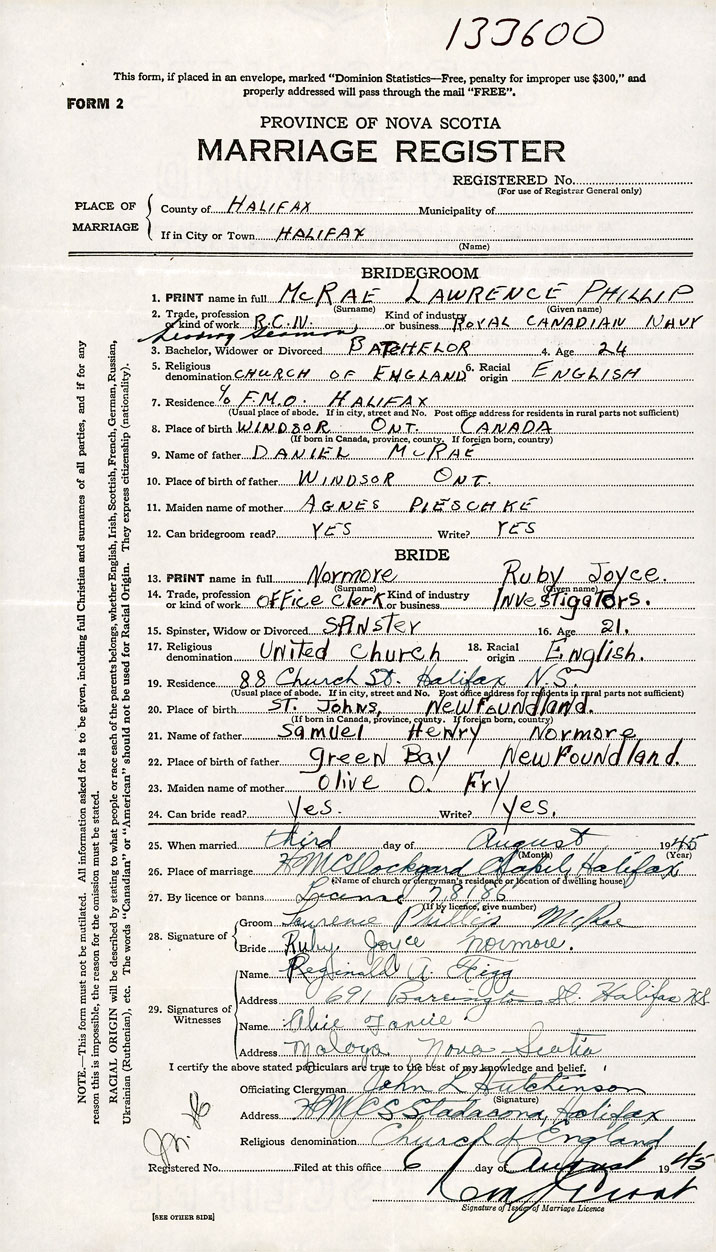 133600
This form, if placed in an envelope, marked "Dominion Statistics—Free, penalty for improper use $300," and
properly addressed will pass through the mail "FREE".
FORM 2
PROVINCE OF NOVA SCOTIA
MARRIAGE REGISTER
REGISTERED No.
(For use of Registrar General only)
PLACE OF MARRIAGE
County of HALIFAX Municipality of
If in City or Town HALIFAX
(Name)
BRIDEGROOM
1. PRINT name in full McRAE LAWRENCE PHILLIP
(Surname) (Given name)
2. Trade, profession or kind of work R.C.N. Kind of industry or business ROYAL CANADIAN NAVY
Leading Seaman
3. Bachelor, Widower or Divorced BATCHELOR 4. Age 24
5. Religious denomination CHURCH OF ENGLAND 6. Racial origin ENGLISH
7. Residence % F.M.O. HALIFAX
(Usual place of abode. If in city, street and No. Post office address for residents in rural parts not sufficient)
8. Place of birth WINDSOR ONT. CANADA
(If born in Canada, province, county. If foreign born, country)
9. Name of father DANIEL McRAE
10. Place of birth of father WINDSOR ONT.
11. Maiden name of mother AGNES PIESCHKE
12. Can bridegroom read? YES Write? YES
BRIDE
13. PRINT name in full Normore Ruby Joyce.
(Surname) (Given name)
14. Trade, profession or kind of work Office Clerk Kind of industry or business Investigators.
15. Spinster, Widow or Divorced SPINster 16. Age 21.
17. Religious denomination United Church 18. Racial origin English.
19. Residence 88 Church St. Halifax N.S.
(Usual place of abode. If in city, street and No. Post office address for residents in rural parts not sufficient)
20. Place of birth ST. Johns, Newfoundland.
(If born in Canada, province, county. If foreign born, country)
21. Name of father Samuel Henry Normore
22. Place of birth of father Green Bay Newfoundland.
23. Maiden name of mother Olive O. Fry
24. Can bride read? Yes. Write? Yes.
25. When married third day of August 1945
(Month) (Year)
26. Place of marriage HMC Dockyard Chapel, Halifax
(Name of church or clergyman's residence or location of dwelling house)
27. By licence or banns License 78186
(If by licence, give number)
28. Signature of
Groom Lawrence Phillip McRae
Bride Ruby Joyce Normore.
29. Signatures of Witnesses
Name Reginald A.
Address 691 Barrington St. Halifax N.S.
Name
Address Nova Scotia
I certify the above stated particulars are true to the best of my knowledge and belief.
Officiating Clergyman John L Hutchinson
(Signature)
Address HMCS Stadacona, Halifax
Religious denomination Church of England
Registered No. Filed at this office 6 day of August 1945
Signature of Issuer of Marriage Licence
[SEE OTHER SIDE]
NOTE.—This form must not be mutilated. All information asked for is to be given, including full Christian and surnames of all parties, and if for any
reason this is impossible, the reason for the omission must be stated.
RACIAL ORIGIN will be described by stating to what people or race each of the parents belongs, whether English, Irish, Scottish, French, German, Russian,
Ukrainian (Ruthenian), etc. The words "Canadian" or "American" should not be used for Racial Origin. They express citizenship (nationality).